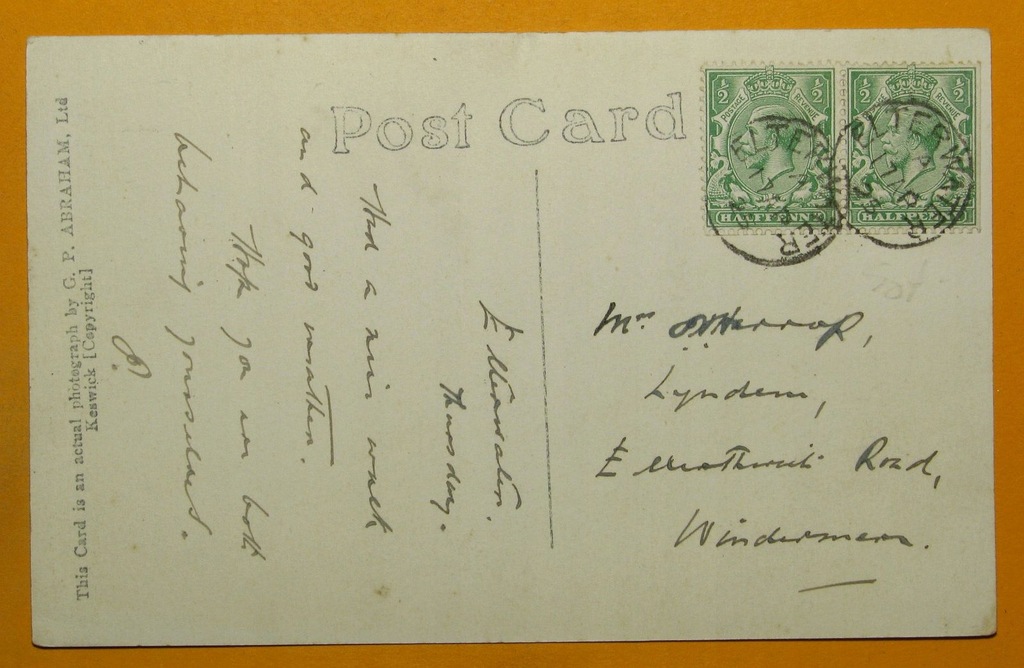 Post Card
This Card is an actual photograph by G. P. ABRAHAM, Ltd
Keswick [Copyright]
½ ½
POSTAGE REVENUE
HALFPENNY
ELTERWATER
½ ½
POSTAGE REVENUE
HALFPENNY
ELTERWATER
Elterwater.
Thursday.
Had a nice walk
and good weather.
Hope you are both
behaving yourselves.
P.
Mrs
Lyndem,
Ellerthwaite Road,
Windermere.